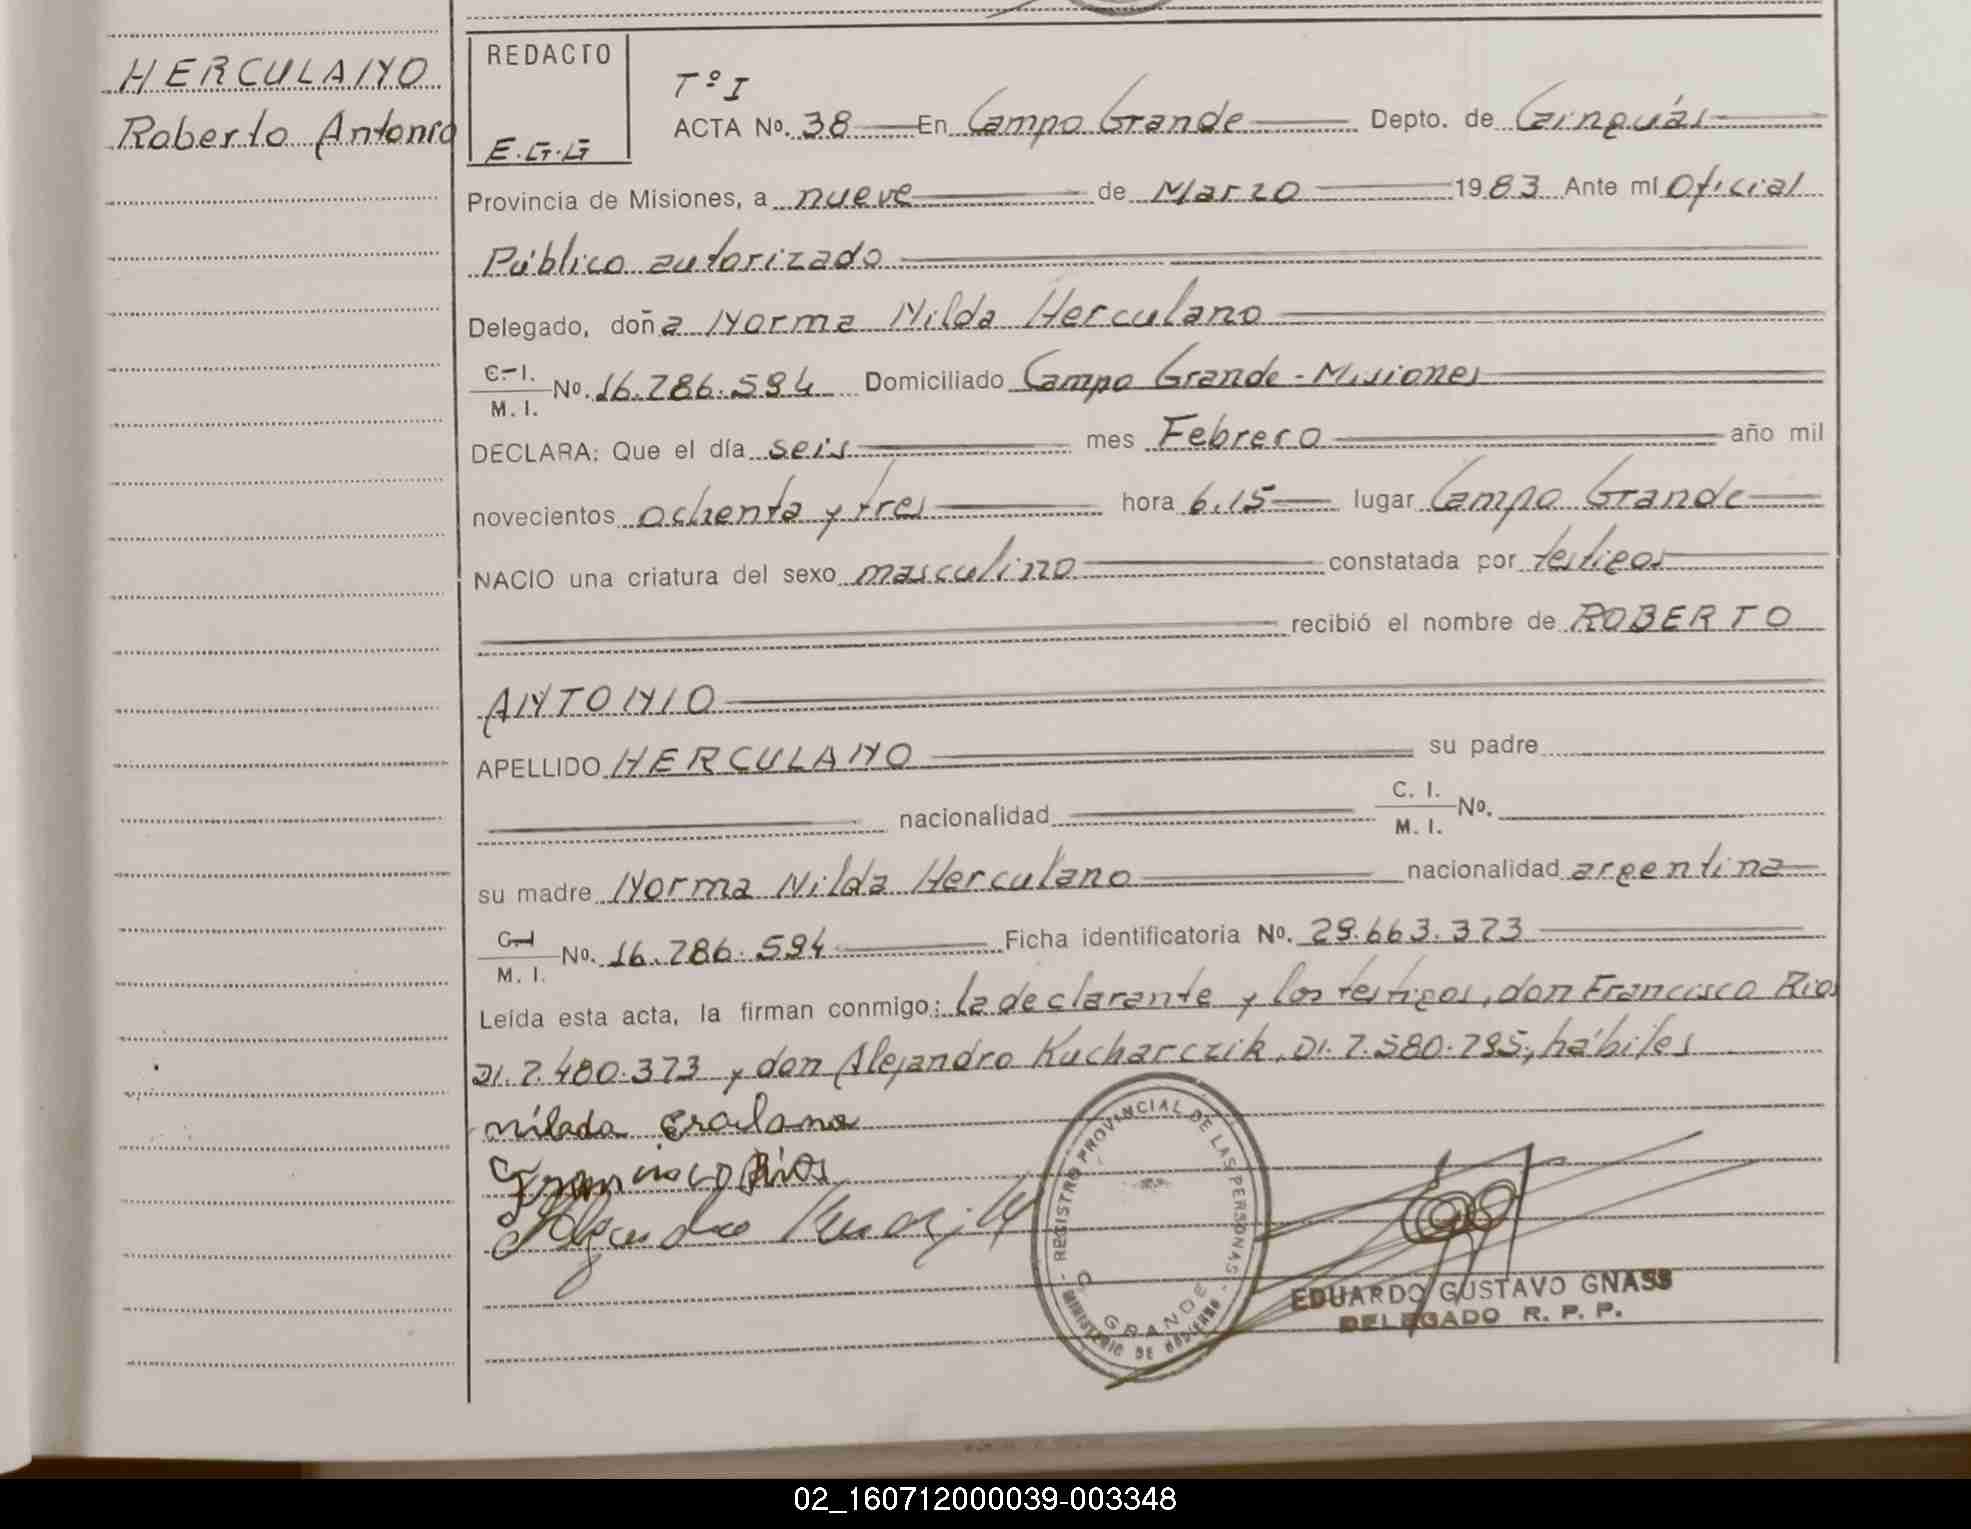 HERCULANO
Roberto Antonio
REDACTO
E.G.G
Tº I
ACTA Nº. 38 En Campo Grande Depto. de Cainguás
Provincia de Misiones, a nueve de Marzo 1983 Ante mí Oficial
Público autorizado
Delegado, doña Norma Nilda Herculano
C. I.
M. I. Nº. 16.786.594 Domiciliado Campo Grande - Misiones
DECLARA: Que el día seis mes Febrero año mil
novecientos ochenta y tres hora 6,15 lugar Campo Grande
NACIO una criatura del sexo masculino constatada por testigos
recibió el nombre de ROBERTO
ANTONIO
APELLIDO HERCULANO su padre
nacionalidad C. I.
M. I. Nº.
su madre Norma Nilda Herculano nacionalidad argentina
C. I.
M. I. Nº. 16.786.594 Ficha identificatoria Nº. 29.663.373
Leída esta acta, la firman conmigo: la declarante y los testigos, don Francisco Rios
DI. 7.480.373 y don Alejandro Kucharczik, DI. 7.580.795, hábiles
nilada erculano
Francisco Rios
REGISTRO PROVINCIAL DE LAS PERSONAS
C. GRANDE
MINISTERIO DE GOBIERNO
EDUARDO GUSTAVO GNASS
DELEGADO R. P. P.
02_160712000039-003348